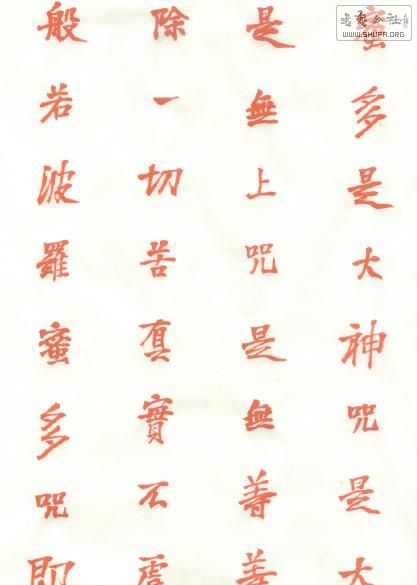 蜜多是大神咒是大
是無上咒是無等等
除一切苦真實不虛
般若波羅蜜多咒即
書藝公社
WWW.SHUFA.ORG